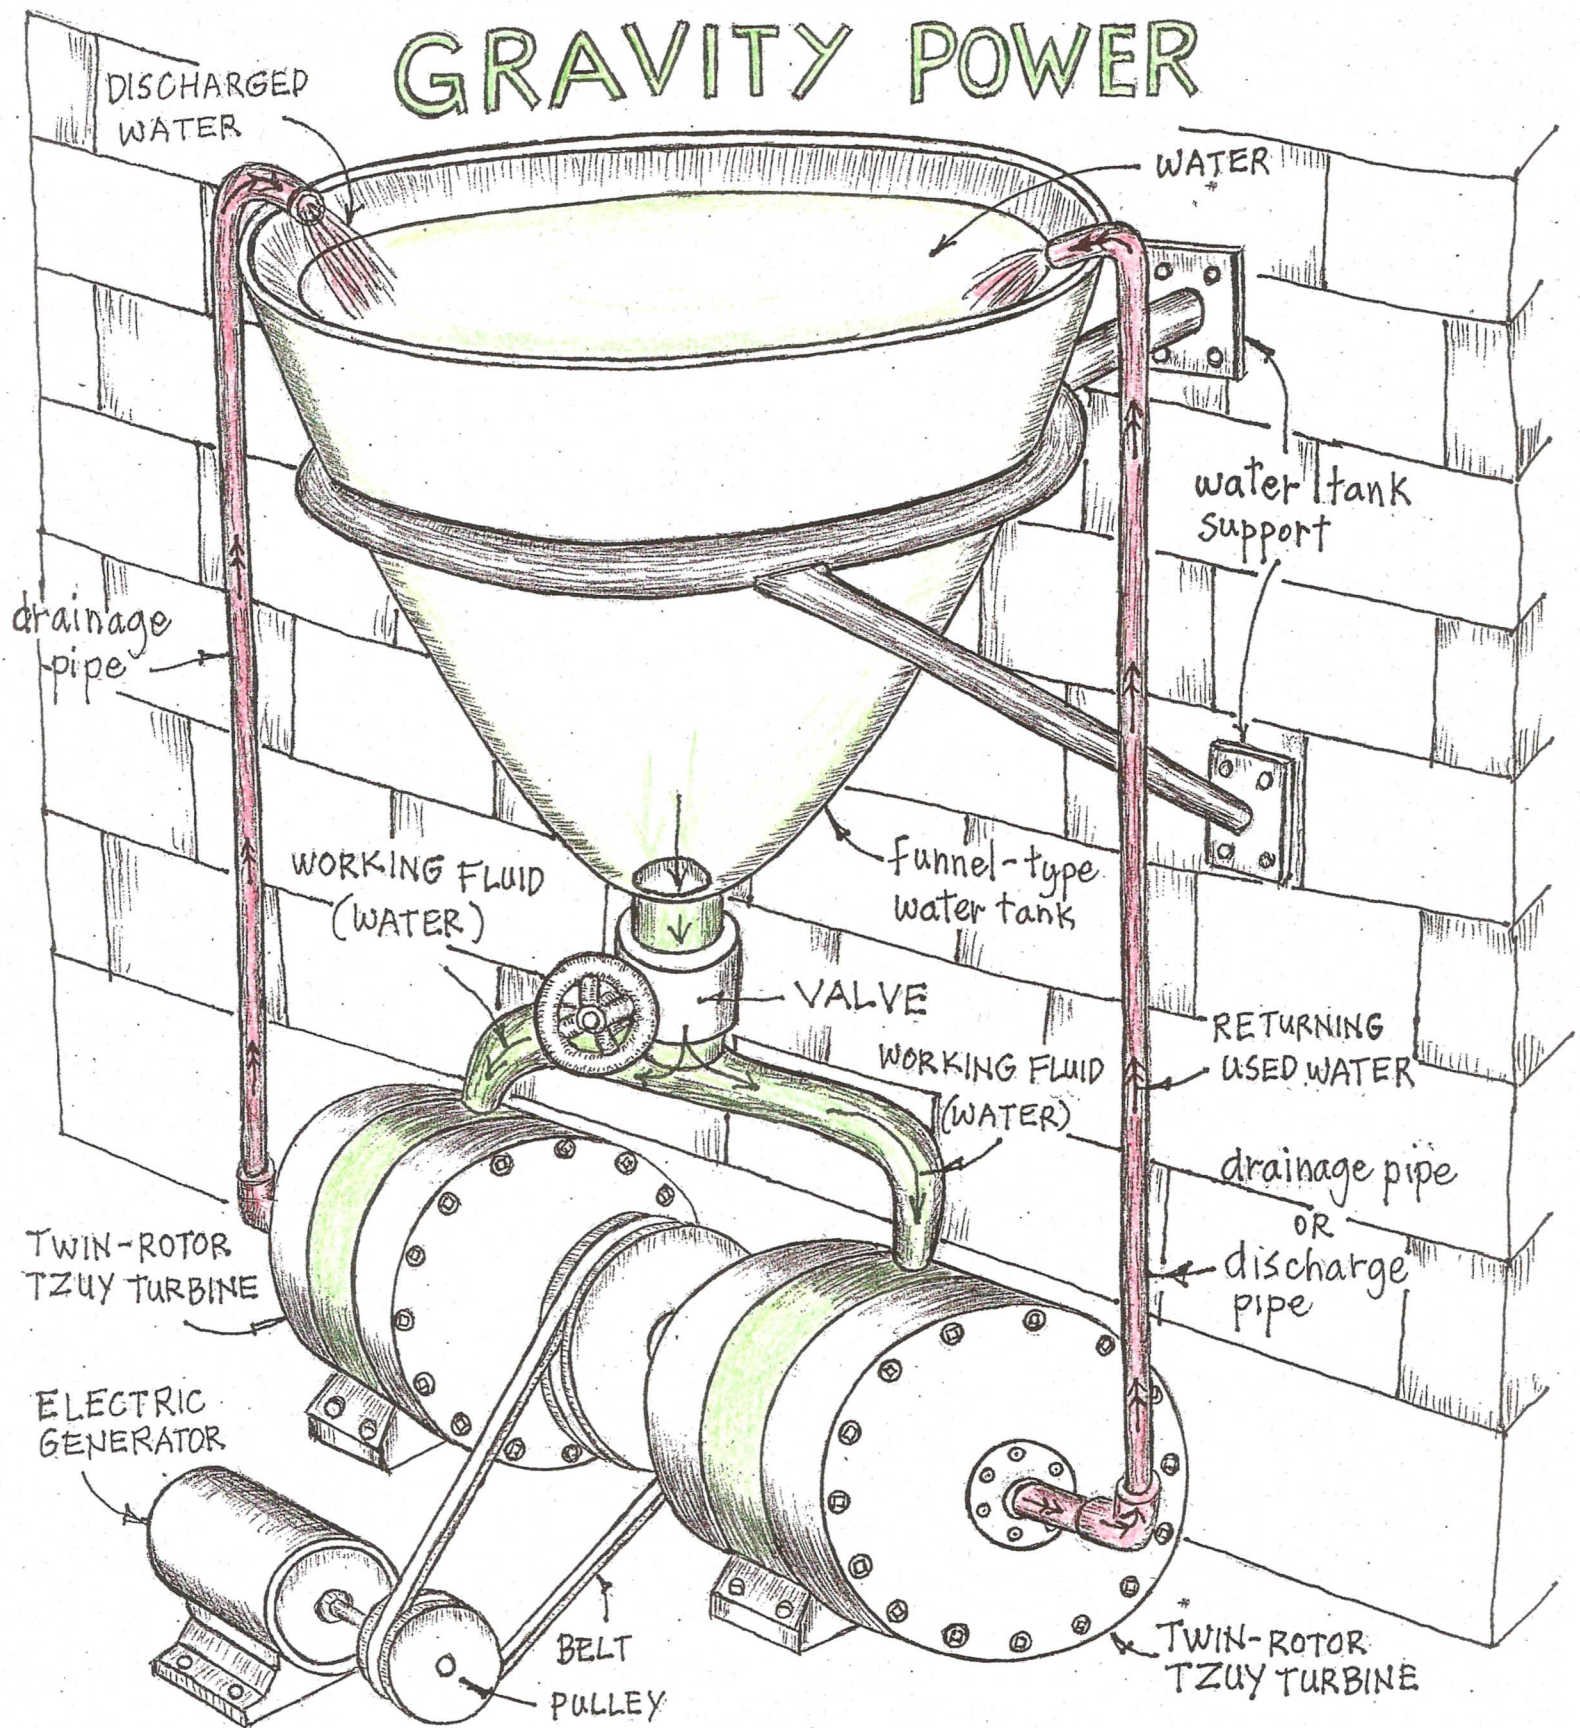 GRAVITY POWER
DISCHARGED
WATER
WATER
water tank
support
drainage
pipe
WORKING FLUID
(WATER)
funnel-type
water tank
VALVE
RETURNING
USED WATER
WORKING FLUID
(WATER)
drainage pipe
OR
discharge
pipe
TWIN-ROTOR
TZUY TURBINE
ELECTRIC
GENERATOR
BELT
PULLEY
TWIN-ROTOR
TZUY TURBINE